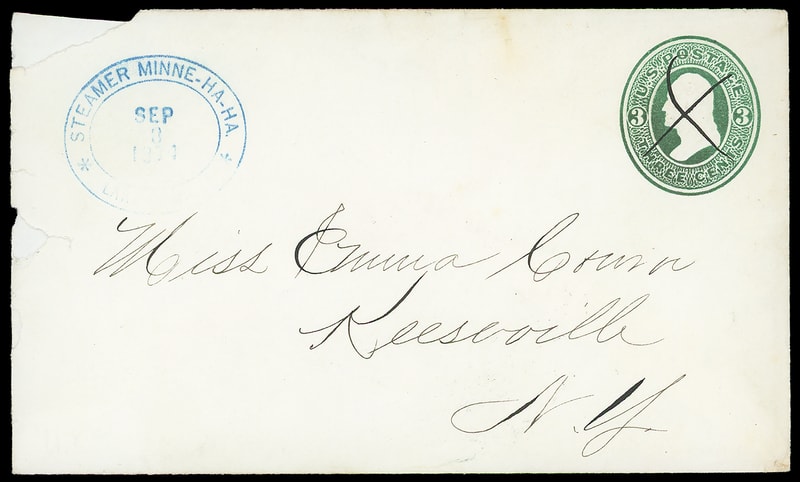 STEAMER MINNE-HA-HA.
SEP
U.S. POSTAGE
3 3
THREE CENTS
Miss Emma
Keeseville
N.Y.